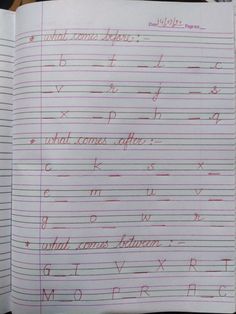 * what come before : -
_ b _ t _ l _ c
_ v _ r _ j _ s
_ x _ p _ h _ q
* what comes after : -
c _ k _ s _ x _
e _ m _ u _ v _
g _ o _ w _ r _
* what comes between : -
G _ I V _ X R _ T
M _ O P _ R A _ C